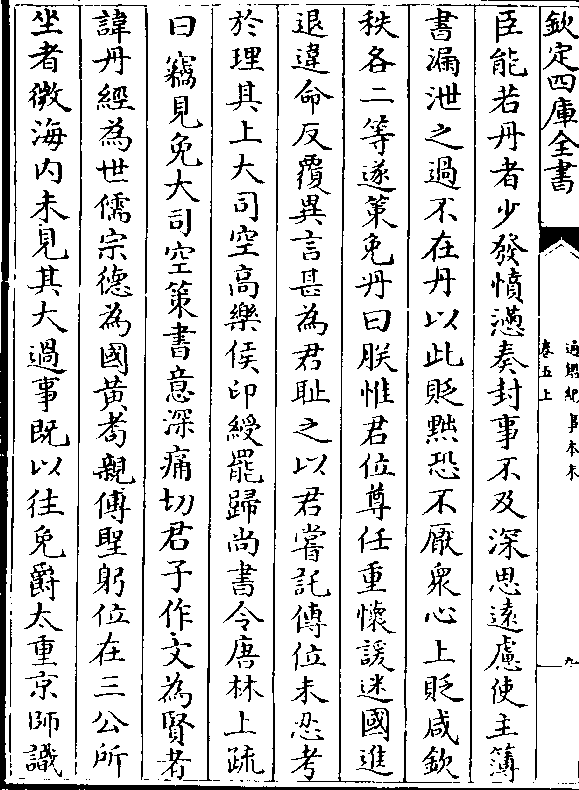 欽定四庫全書
通鑑紀事本末
卷五上
九
臣能若丹者少發憤懣奏封事不及深思遠慮使主簿
書漏泄之過不在丹以此貶黜恐不厭衆心上貶咸欽
秩各二等遂策免丹曰朕惟君位尊任重懷諼迷國進
退違命反覆異言甚為君恥之以君嘗託傅位未忍考
於理其上大司空高樂侯印綬罷歸尚書令唐林上疏
曰竊見免大司空策書意深痛切君子作文為賢者
諱丹經為世儒宗德為國黄耉親傅聖躬位在三公所
坐者微海内未見其大過事既以往免爵太重京師識